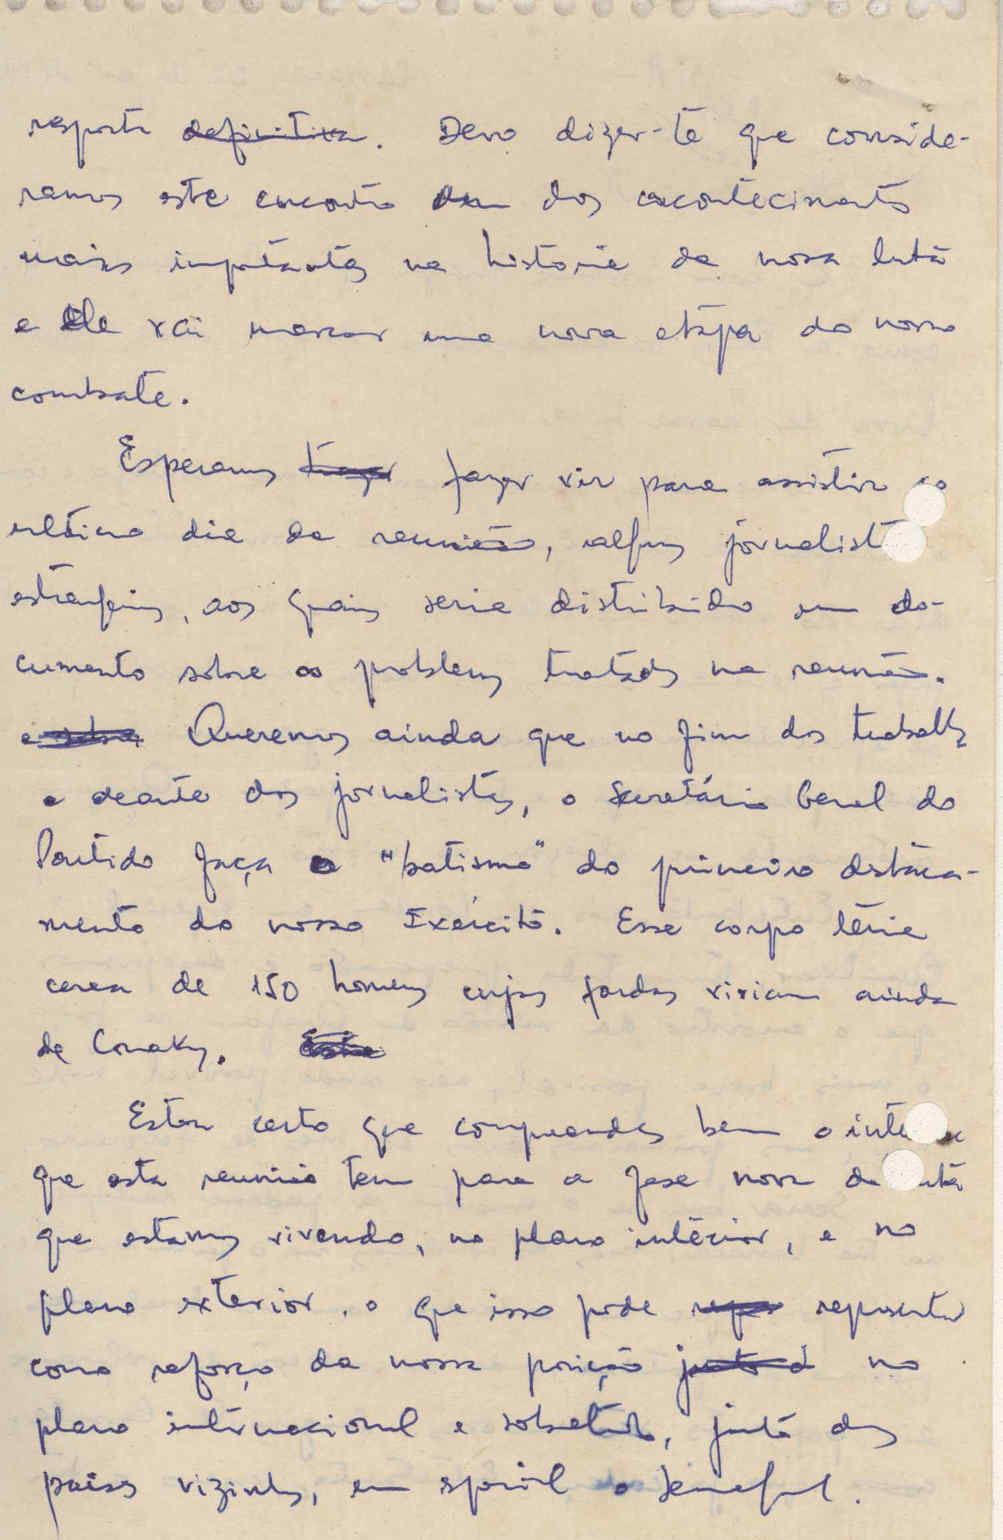 resposta definitiva. Devo dizer-te que conside-
ramos este encontro um dos acontecimentos
mais importantes na história da nossa luta
e ele vai marcar uma nova etapa do nosso
combate.
Esperamos trazer fazer vir para assistir ao
último dia da reunião, alguns jornalistas
estrangeiros, aos quais seria distribuído um do-
cumento sobre os problemas tratados na reunião.
e sobre Queremos ainda que no fim dos trabalhos
e deante dos jornalistas, o Secretário Geral do
Partido faça o "batismo" do primeiro destaca-
mento do nosso Exército. Esse corpo teria
cerca de 150 homens cujas fardas viriam ainda
de Conakry.
Estou certo que compreendes bem o interesse
que esta reunião tem para a fase nova da luta
que estamos vivendo, no plano interior, e no
plano exterior, o que isso pode representar
como reforço da nossa posição junto a no
plano internacional e sobretudo, junto dos
países vizinhos, em special o Senegal.